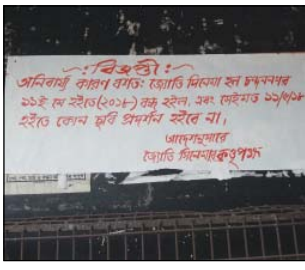 :বিজ্ঞপ্তী:
অনিবার্য্য কারণ বশতঃ জ্যোতি সিনেমা হল চন্দননগর
১১ই মে হইতে(২০১৮) বন্ধ হইল, এবং সেইমত ১১/৫/১৮
হইতে কোন ছবি প্রদর্শন হইবে না।
আদেশানুসারে
জ্যোতি সিনেমার কতৃপক্ষ